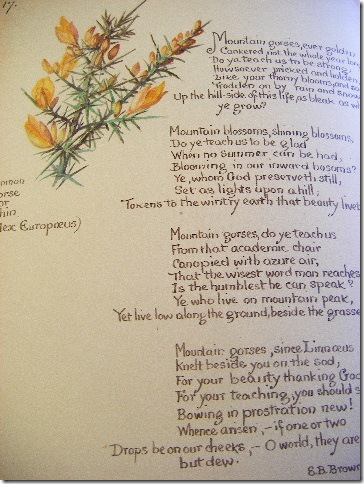 17.
Mountain gorses, ever golden,
Cankered not the whole year long
Do ye teach us to be strong,
Howsoever pricked and holden,
Like your thorny blooms, and so
Trodden on by rain and snow
Up the hill-side of this life, as bleak as w
ye grow?
Mountain blossoms, shining blossoms,
Do ye teach us to be glad
When no Summer can be had,
Blooming in our inward bosoms?
Ye, whom God preserveth still,
Set as lights upon a hill,
Tokens to the wintry earth that beauty livet
Mountain gorses, do ye teach us
From that academic chair
Canopied with azure air,
That the wisest word man reaches
Is the humblest he can speak?
Ye who live on mountain peak,
Yet live low along the ground, beside the grasse
mmon
orse
or
hin
lex Europœus)
Mountain gorses, since Linnœus
Knelt beside you on the sod,
For your beauty thanking God
For your teaching, you should s
Bowing in prostration new!
Whence arisen,- if one or two
Drops be on our cheeks,- O world, they are
but dew.
E.B. Brown